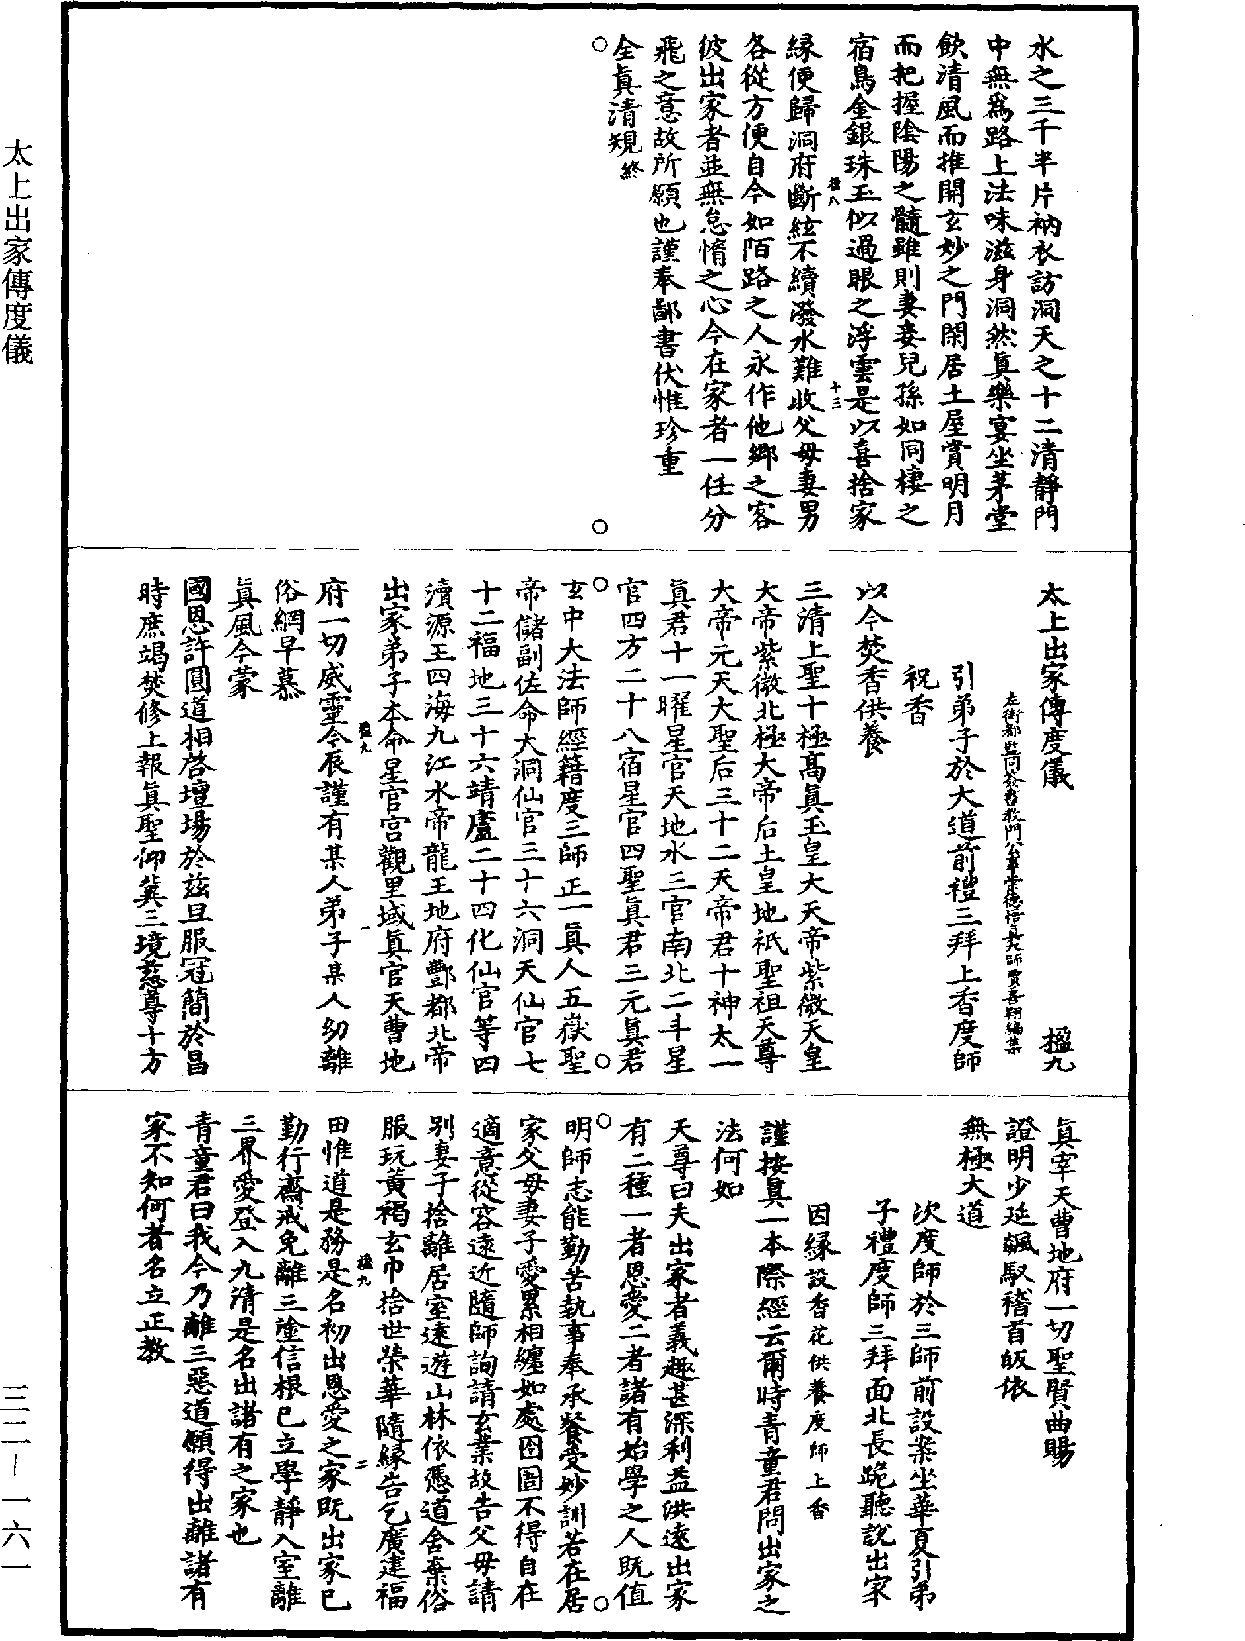 水之三千半片衲衣訪洞天之十二清靜門
中無爲路上法味滋身洞然眞樂宴坐茅堂
飲清風而推開玄妙之門閑居土屋賞明月
而把握陰陽之髓雖則妻妾兒孫如同棲之
宿鳥金銀珠玉似過眼之浮雲是以喜捨家
楹八
十三
緣便歸洞府斷絃不續潑水難收父母妻男
各從方便自今如陌路之人永作他鄉之客
彼出家者並無怠惰之心今在家者一任分
飛之意故所願也謹奉鄙書伏惟珍重
全眞清規終
太上出家傳度儀
楹九
左街都監同簽書教門公事崇德悟眞大師賈善翔編集
引弟子於大道前禮三拜上香度師
祝香
以今焚香供養
三清上聖十極高眞玉皇大天帝紫微天皇
大帝紫微北極大帝后土皇地祇聖祖天尊
大帝元天大聖后三十二天帝君十神太一
眞君十一曜星官天地水三官南北二斗星
官四方二十八宿星官四聖眞君三元眞君
玄中大法師經籍度三師正一眞人五嶽聖
帝儲副佐命大洞仙官三十六洞天仙官七
十二福地三十六靖廬二十四化仙官等四
瀆源王四海九江水帝龍王地府酆都北帝
出家弟子本命星官宮觀里域眞官天曹地
楹九
一
府一切威靈今辰謹有某人弟子某人幼離
俗網早慕
眞風今蒙
國恩許圓道相啓壇場於茲旦服冠簡於昌
時庶竭焚修上報眞聖仰冀三境慈尊十方
眞宰天曹地府一切聖賢曲賜
證明少延飆馭稽首皈依
無極大道
次度師於三師前設案坐華夏引弟
子禮度師三拜面北長跪聽說出家
因緣設香花供養度師上香
謹按眞一本際經云爾時青童君問出家之
法何如
天尊曰夫出家者義趣甚深利益洪遠出家
有二種一者恩愛二者諸有始學之人既值
明師志能勤苦執事奉承餐受妙訓若在居
家父母妻子愛累相纏如處囹圄不得自在
適意從容遠近隨師詢請玄業故告父母請
別妻子捨離居室遠遊山林依憑道舍棄俗
服玩黃褐玄巾捨世榮華隨緣告乞廣建福
楹九
二
田惟道是務是名初出恩愛之家既出家已
勤行齋戒免離三塗信根已立學靜入室離
三界愛登入九清是名出諸有之家也
青童君曰我今乃離三惡道願得出離諸有
家不知何者名立正教
太上出家傳度儀
三二－一六一